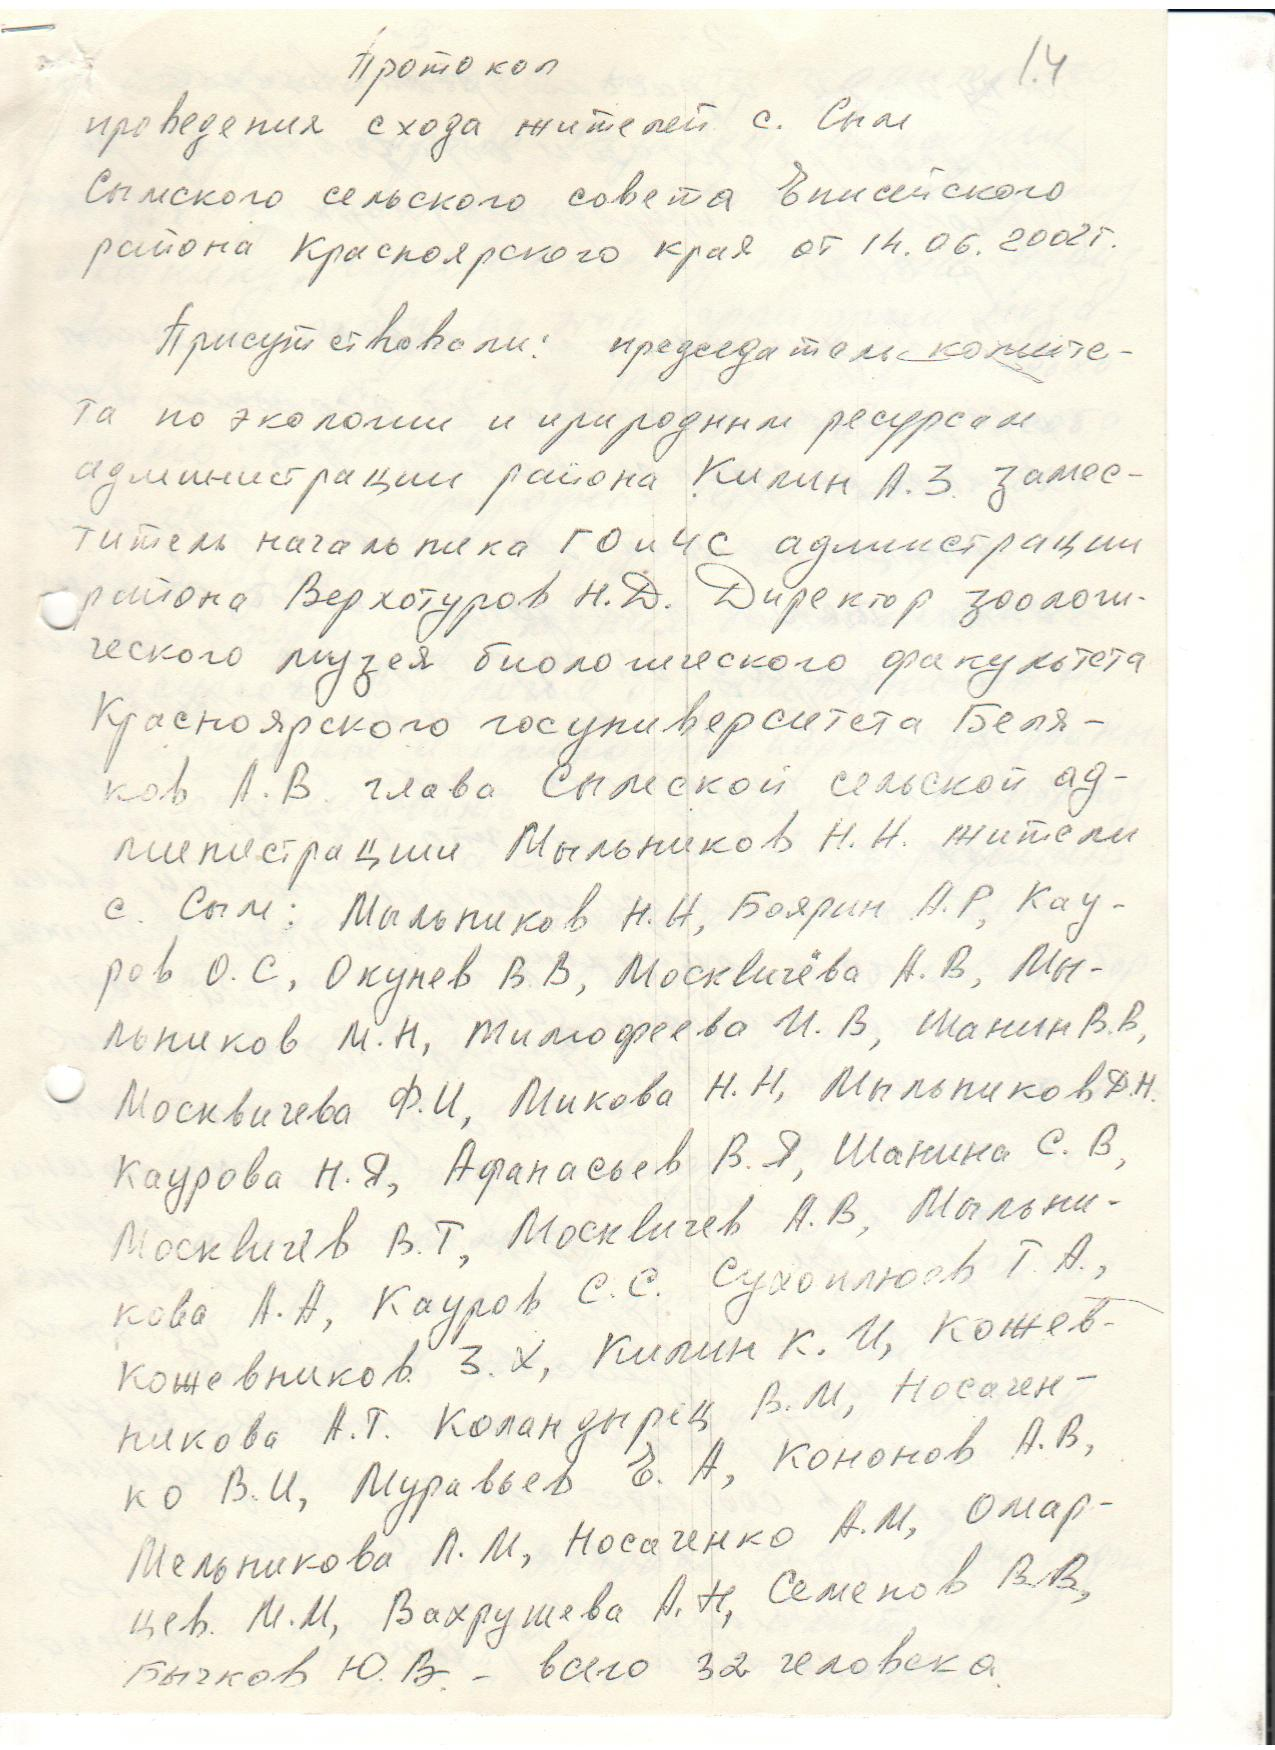 Протокол
1.4
проведения схода жителей с. Сым
Сымского сельского совета Енисейского
района Красноярского края от 14.06.2002г.
Присутствовали: председатель комите-
та по экологии и природным ресурсам
администрации района Килин А.З. замес-
титель начальника ГО и ЧС админстрации
района Верхотуров Н.Д. Директор зоологи-
ческого музея биологического факультета
Красноярского госуниверситета Беля-
ков А.В. глава Сымской сельской ад-
министрации Мыльников Н.Н. жители
с. Сым: Мыльников Н.Н, Боярин А.Р, Кау-
ров О.С, Окунев В.В, Москвичёва А.В, Мы-
льников М.Н, Тимофеева И.В, Шанин В.В,
Москвичева Ф.И, Микова Н.Н, Мыльников Д.Н.
Каурова Н.Я, Афанасьев В.Я, Шанина С.В,
Москвичёв В.Т, Москвичев А.В, Мыльни-
кова А.А, Кауров С.С. Сухоплюев Г.А.,
Кожевников З.Х, Килин К.И, Кожев-
никова А.Т. Коландырец В.М, Носачен-
ко В.И, Муравьев Е.А, Кононов А.В,
Мельникова Л.М, Носаченко А.М, Омар-
цев М.М, Вахрушева А.Н, Семенов В.В,
Бычков Ю.В. - всего 32 человека.